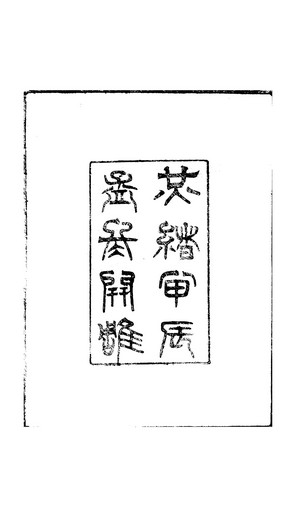 光緒甲辰
孟冬開雕